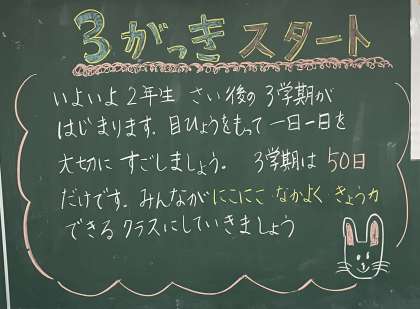 3がっきスタート
いよいよ2年生 さい後の3学期が
はじまります。目ひょうをもって一日一日を
大切にすごしましょう。 3学期は50日
だけです。みんながにこにこ なかよく きょう力
できるクラスにしていきましょう